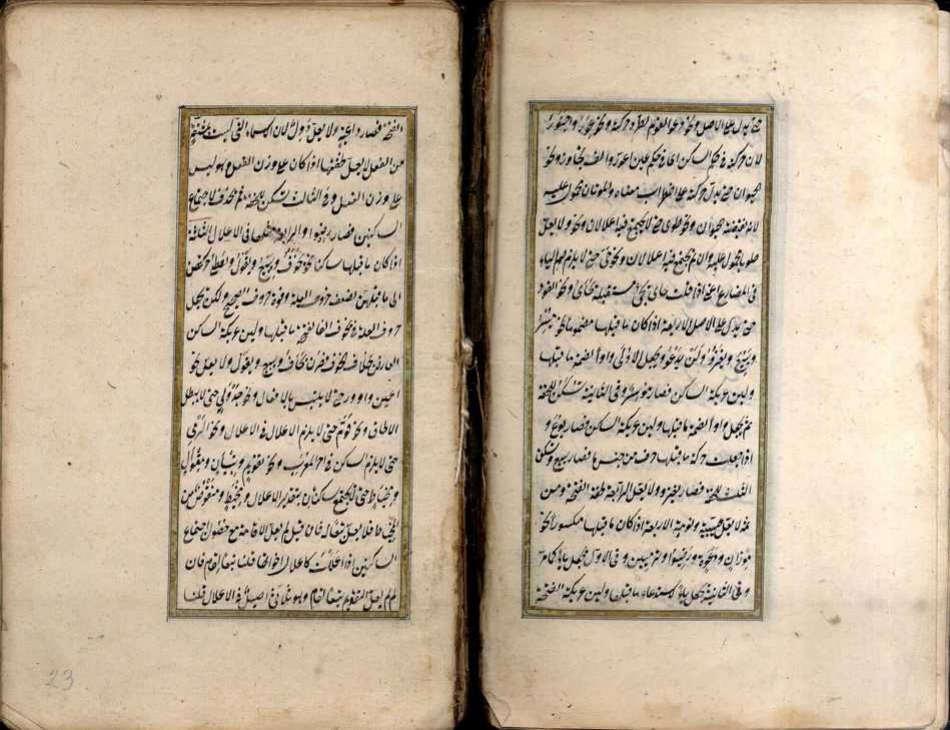 حتى يدل على الاصل ونحو دعوا القوم لطرو حركته ونحو عور واجتور
لان حركته في حكم السكون اى في حكم عين اعور والف تجاوز ونحو
حيوان حتى يدل حركته على اضطراب معناه والموتان محمول عليه
لانه نقيضه ونحو طوى حتى لا يجتمع فيه اعلالان ونحو ولا يعل
طويا محمول عليه وان لم يجتمع فيه اعلالان ونحو حيى حتى لا يلزم ضم الياء
في المضارع اعنى اذا قلت حاى يجئ مستقبله يحاى ونحو القود
حتى يدل على الاصل الاربعة اذا كان ما قبلها مضموما نحو ميسر
وبيع ويغزو ولن يدعو ويجعل الاولى واوا لضمة ما قبلها
ولين عريكة الساكن فصار موسر وفى الثانية تسكن للخفة
ثم يجعل واوا لضمة ما قبلها ولين عريكة الساكن فصار بوع و
اذا جعلت حركة ما قبلها حرف من جنس ما فصار بيع وتسكن
الثالثة للخفة فصار يغزو ولا يعل الرابعة لخفة الفتحة ومن
ثمه لا يعل عيبة ونومة الاربعة اذا كان ما قبلها مكسورا نحو
موزان وداعوة ورضيوا وترميين وفى الاولى يجعل ياء كما مر
وفى الثانية يجعل ياء لاستدعاء ما قبلها ولين عريكة الفتحة
الفتحة فصار داعية ولا يعل دول لان الاسماء التى ليست مشتقة
من الفعل لا يعل لخفتها اذا كان على وزن الفعل وهو ليس
على وزن الفعل وفى الثالث تسكن للخفة ثم يحذف لاجتماع
الساكنين فصار رضوا والرابعة مثلها فى الاعلال الثلاثة
اذا كان ما قبلها ساكنا نحو يخوف ويبيع ويقول ويعطى حركتهن
الى ما قبلهن لضعف حروف العلة وقوة حروف الصحيح ولكن يجعل
حروف العلة فى يخوف الفا لفتحة ما قبلها ولين عريكة الساكن
العارض بخلاف الخوف فصرن يخاف ويبيع ويقول ولا يعل نحو
اعين وادور حتى لا يلتبس بالافعال ونحو جدول حتى لا يبطل
الالحاق ونحو قوم حتى لا يلزم الاعلال فى الاعلال ونحو الرمى
حتى لا يلزم الساكن فى اخر المعرب ونحو تقويم وتبيان ومقوال
ومخياط حتى لا يجتمع ساكنان بتقدير الاعلال ومخيط منقوص من
المخياط فلا يعل تبعا له فان قيل لم يعل الاقامة مع حصول اجتماع
الساكنين اذا اعلت كاعلال اخواتها قلنا تبعا لاقام فان
لم لم يعل التقويم تبعا لقام وهو ثلاثى اصيل فى الاعلال قلنا
23